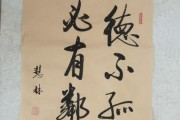 德不孤
必有鄰
慧林